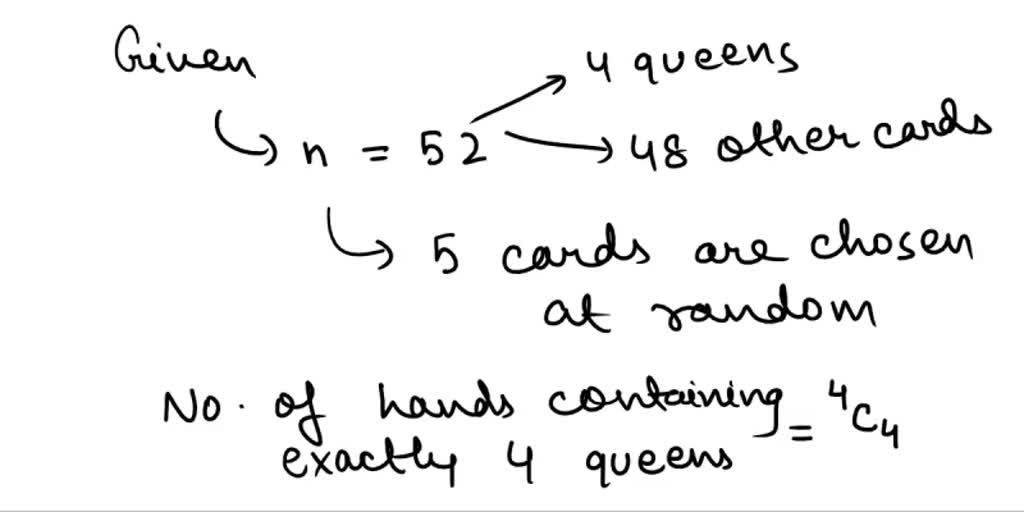 Given
4 queens
n = 52
48 other cards
5 cards are chosen
at random
No. of hands containing
exactly 4 queens = ⁴C₄